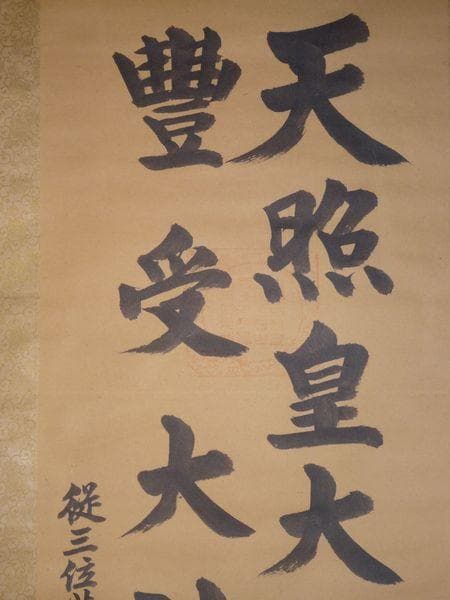 天照皇大
豐受大
從三位